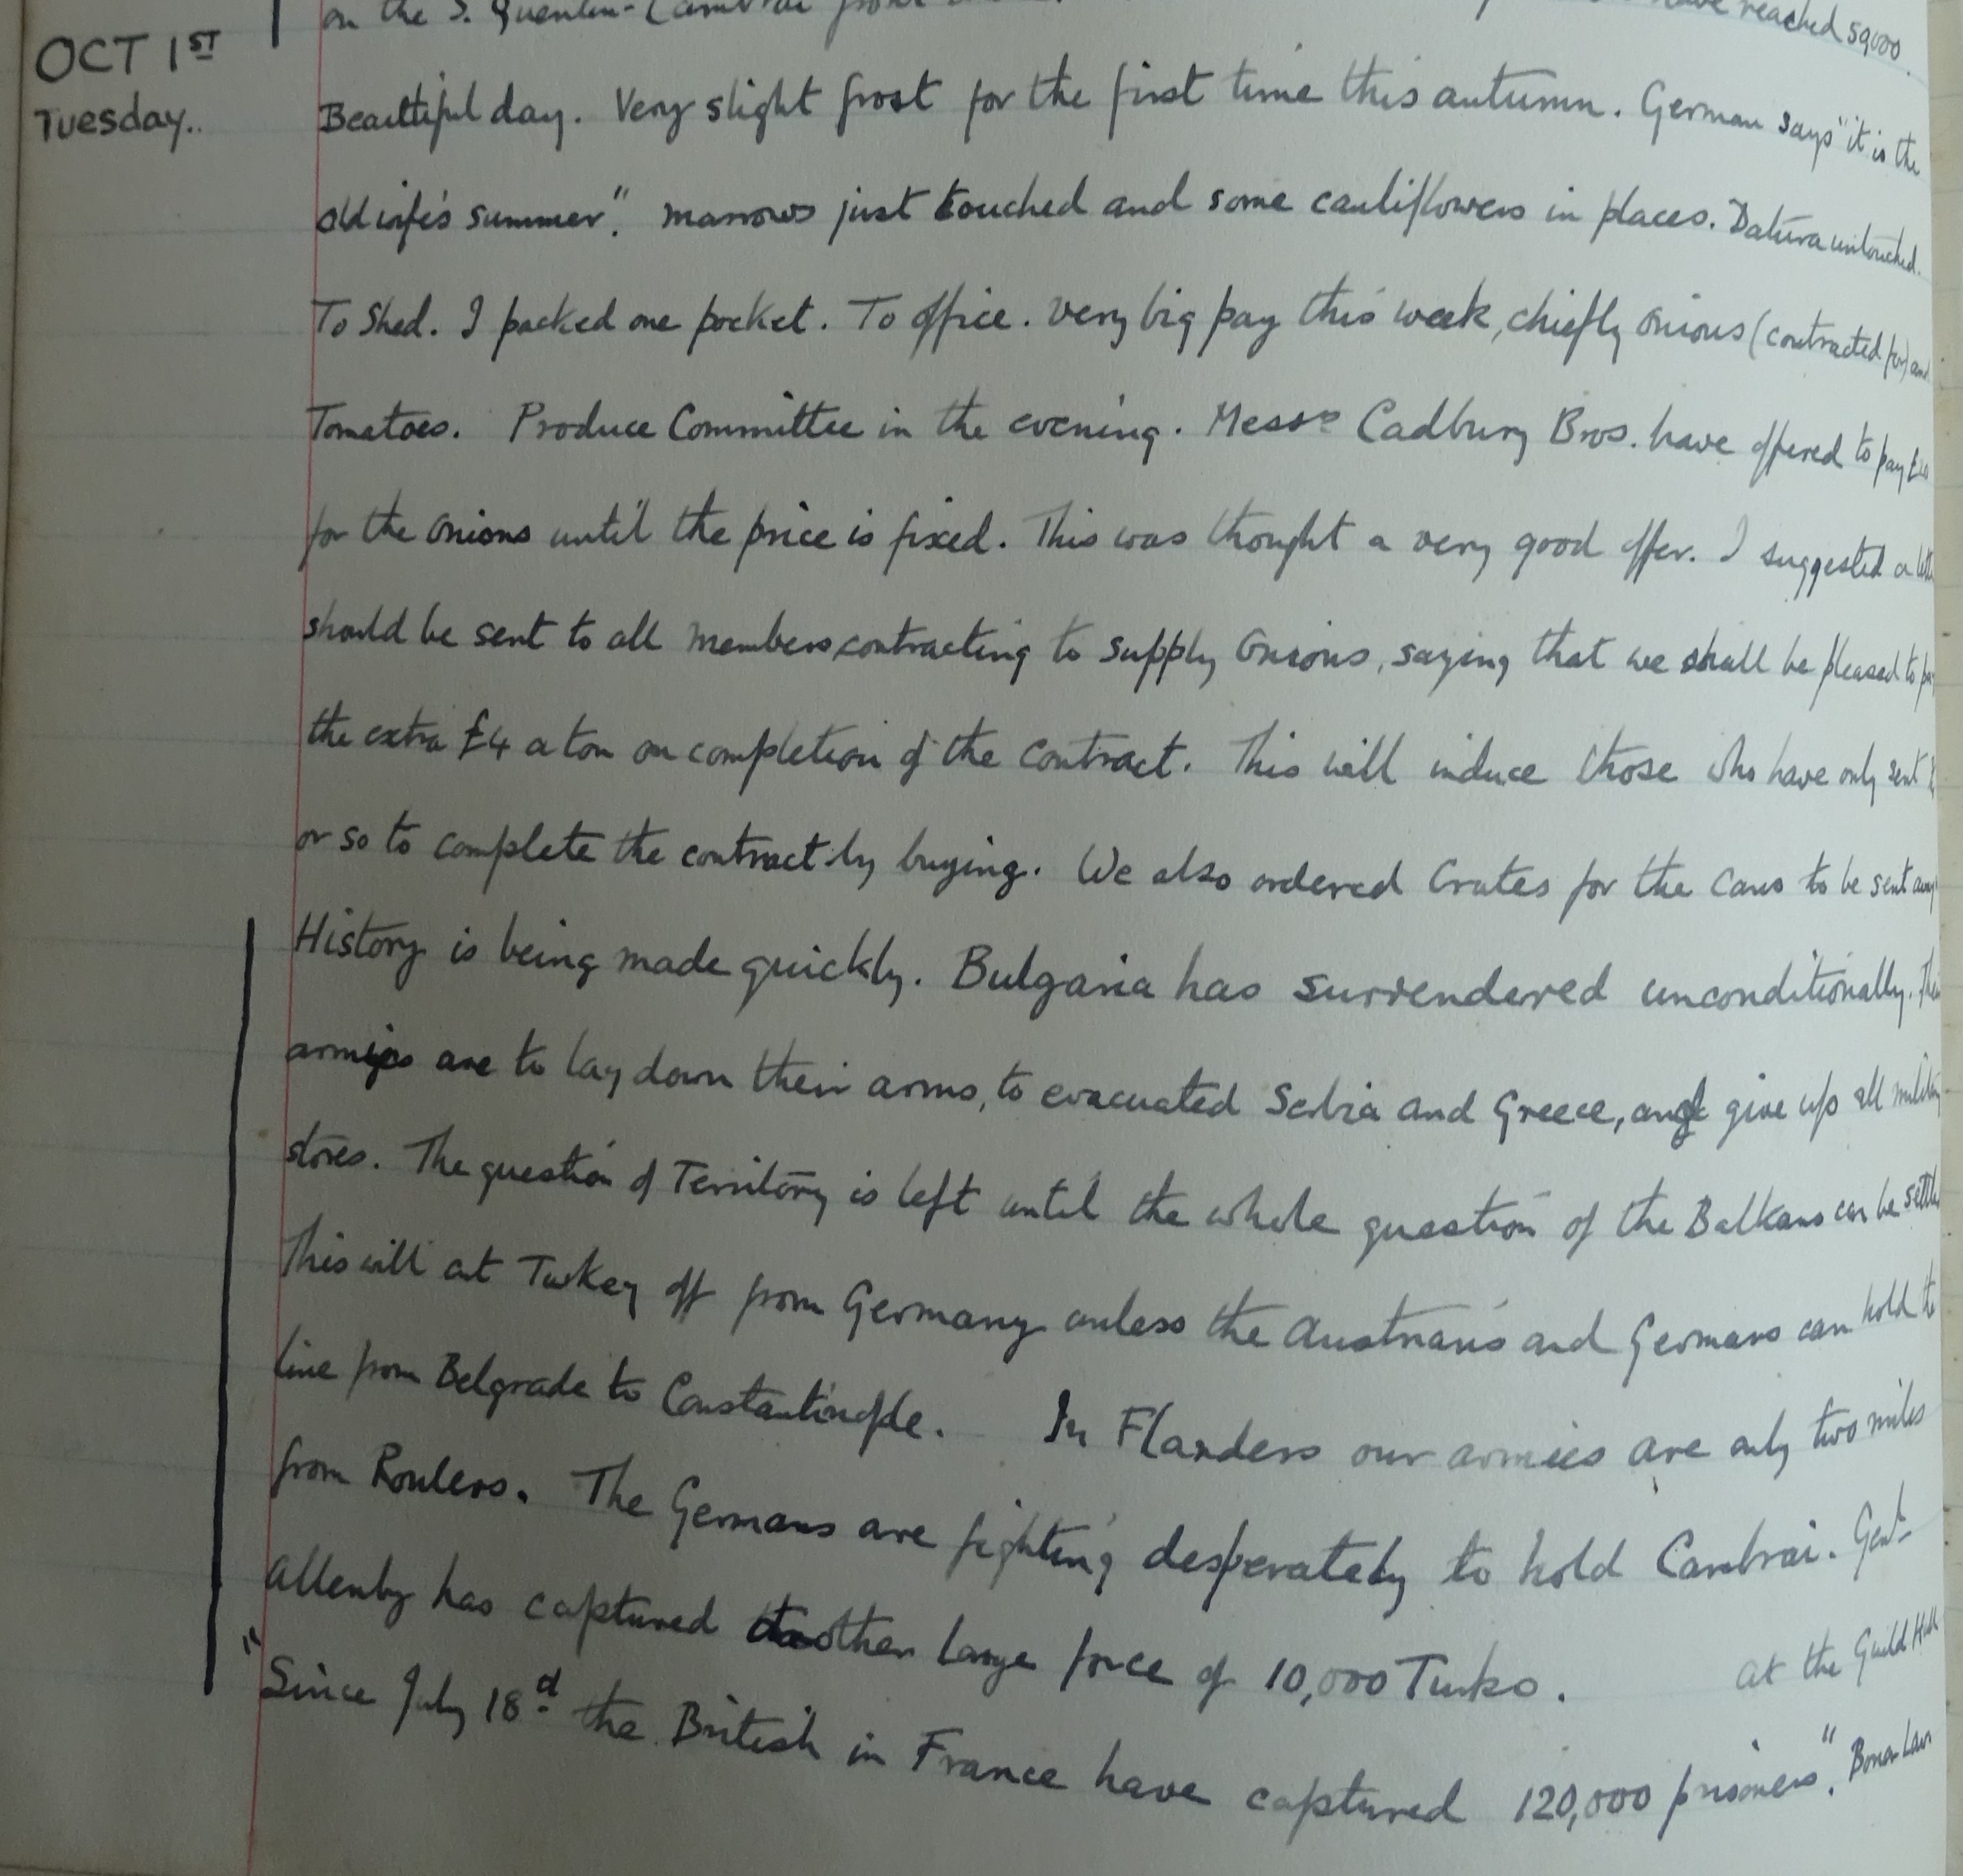 on the S. Quentin-Cambrai have reached 59000.
OCT 1ST
Tuesday..
Beautiful day. Very slight frost for the first time this autumn. German says "it is the
old wife's summer". Marrows just touched and some cauliflowers in places. Datura untouched.
To Shed. I packed one pocket. To office. Very big pay this week, chiefly onions (contracted for) and
Tomatoes. Produce Committee in the evening. Messrs Cadbury Bros. have offered to pay
for the onions until the price is fixed. This was thought a very good offer. I suggested a
should be sent to all members contracting to supply Onions, saying that we shall be pleased to
the extra £4 a ton on completion of the contract. This will induce those who have only sent
or so to complete the contract by buying. We also ordered Crates for the cans to be sent away
History is being made quickly. Bulgaria has surrendered unconditionally.
armies are to lay down their arms, to evacuated Serbia and Greece, and give up all
stores. The question of Territory is left until the whole question of the Balkans can be
This will cut Turkey off from Germany unless the Austrians and Germans can hold
line from Belgrade to Constantinople. In Flanders our armies are only two miles
from Roulers. The Germans are fighting desperately to hold Cambrai. Genl
Allenby has captured another large force of 10,000 Turks. at the Guild Hall
"Since July 18d the British in France have captured 120,000 prisoners". Bonar Law